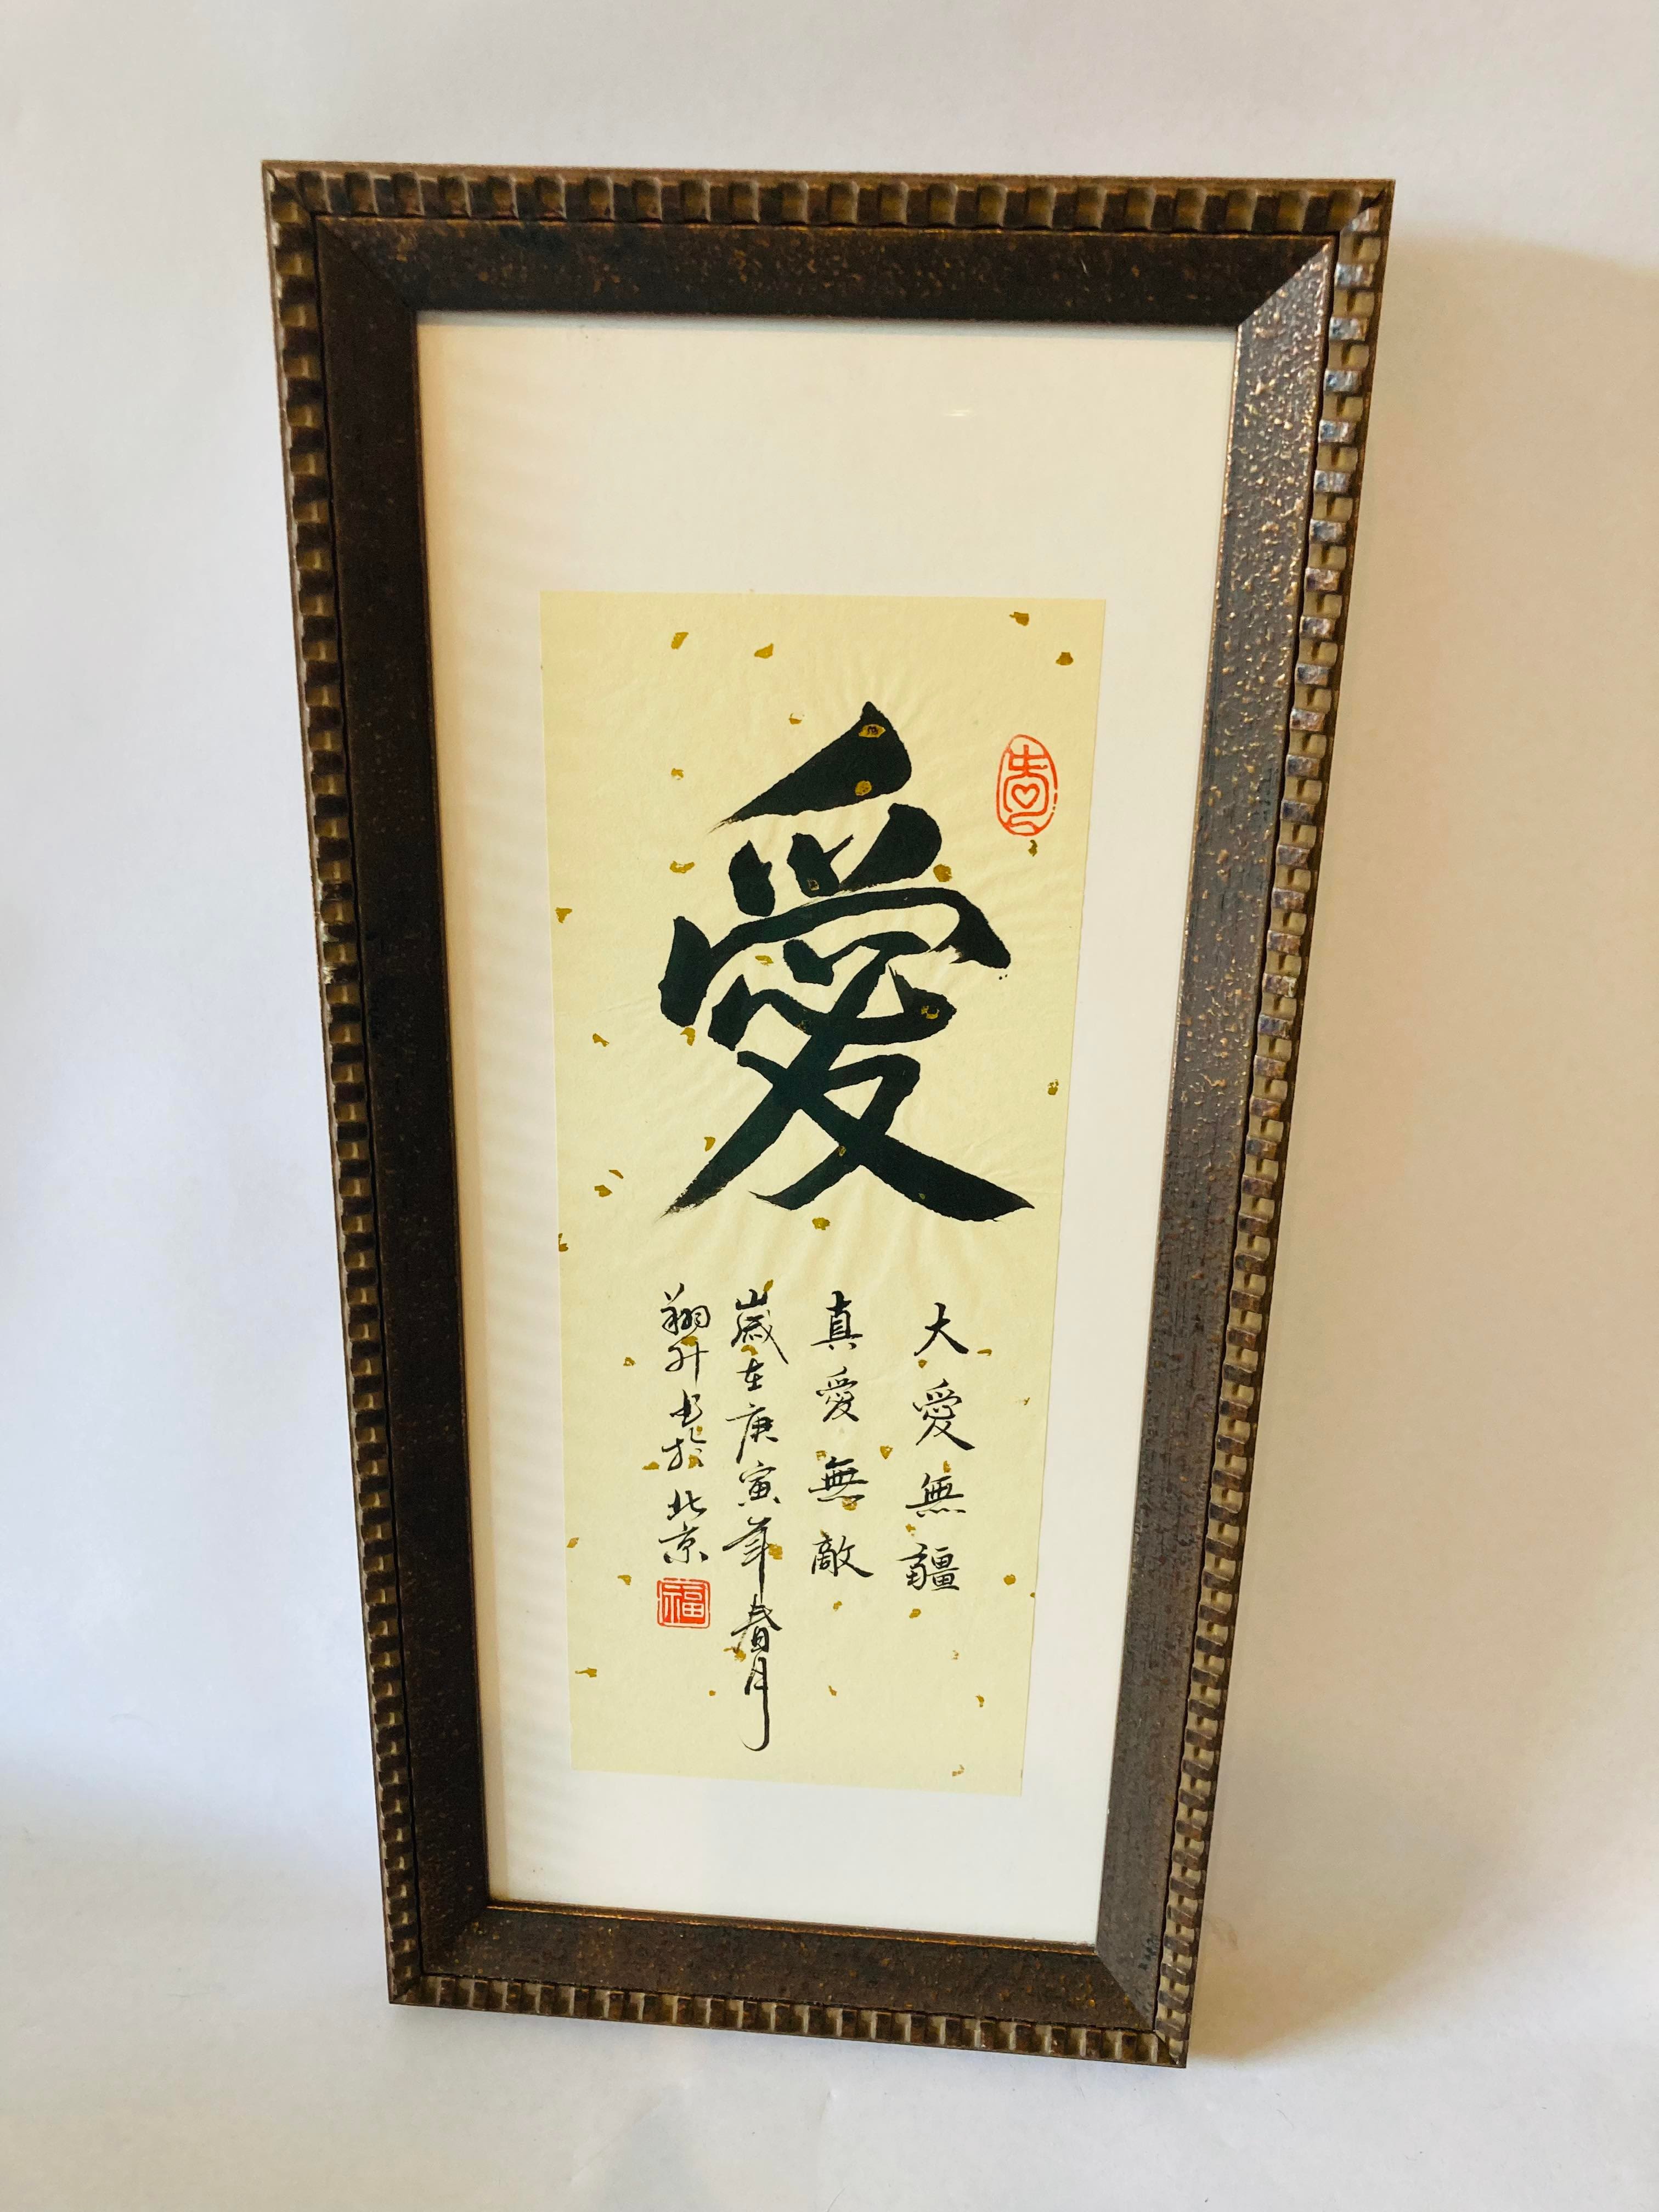 愛
大愛無疆
真愛無敵
歲在庚寅年春月
翔升书於北京
福